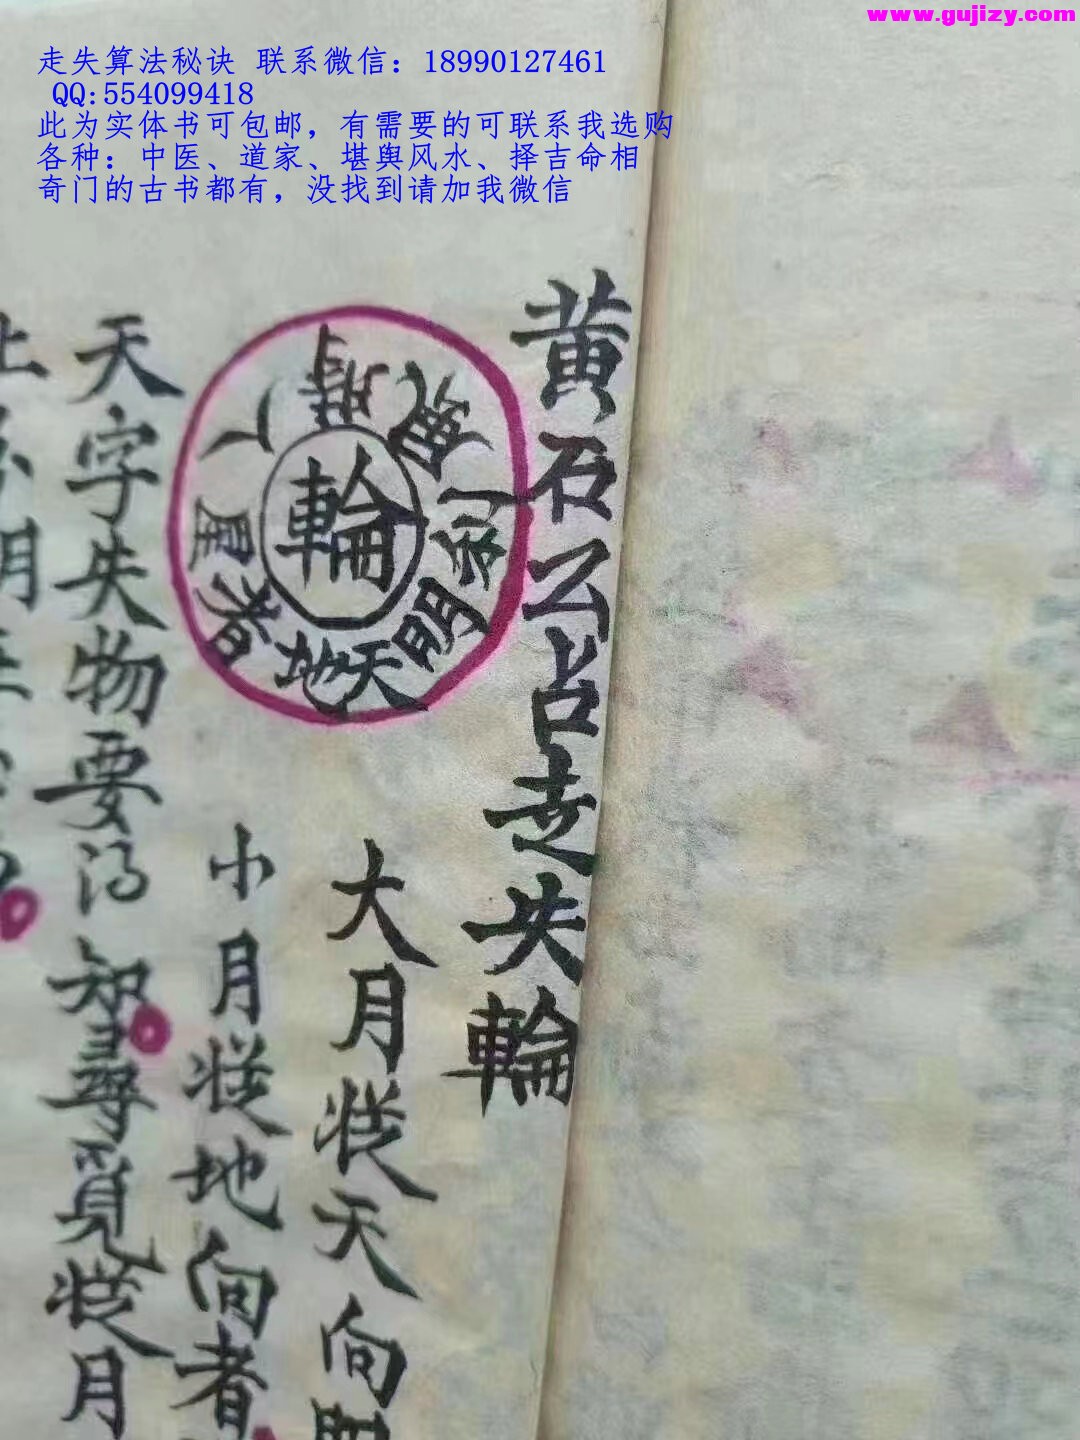 www.gujizy.com
走失算法秘诀 联系微信：18990127461
QQ:554099418
此为实体书可包邮，有需要的可联系我选购
各种：中医、道家、堪舆风水、择吉命相
奇门的古书都有，没找到请加我微信
黄石公占走失輪
輪
天
明
利
星
者
地
大月從天向明
小月從地向者
天字失物要得知尋覓從月